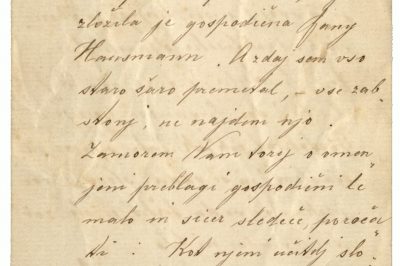 zložila je gospodična Fany
Hausmann. A zdaj sem vso
staro šaro premetal, – vse zab
stonj, ne najdem njo.
Zamorem Vam torej o omen„
jeni preblagi gospodični le
malo in sicer sledeče, poroča
ti: Kot njeni učitelj slo„